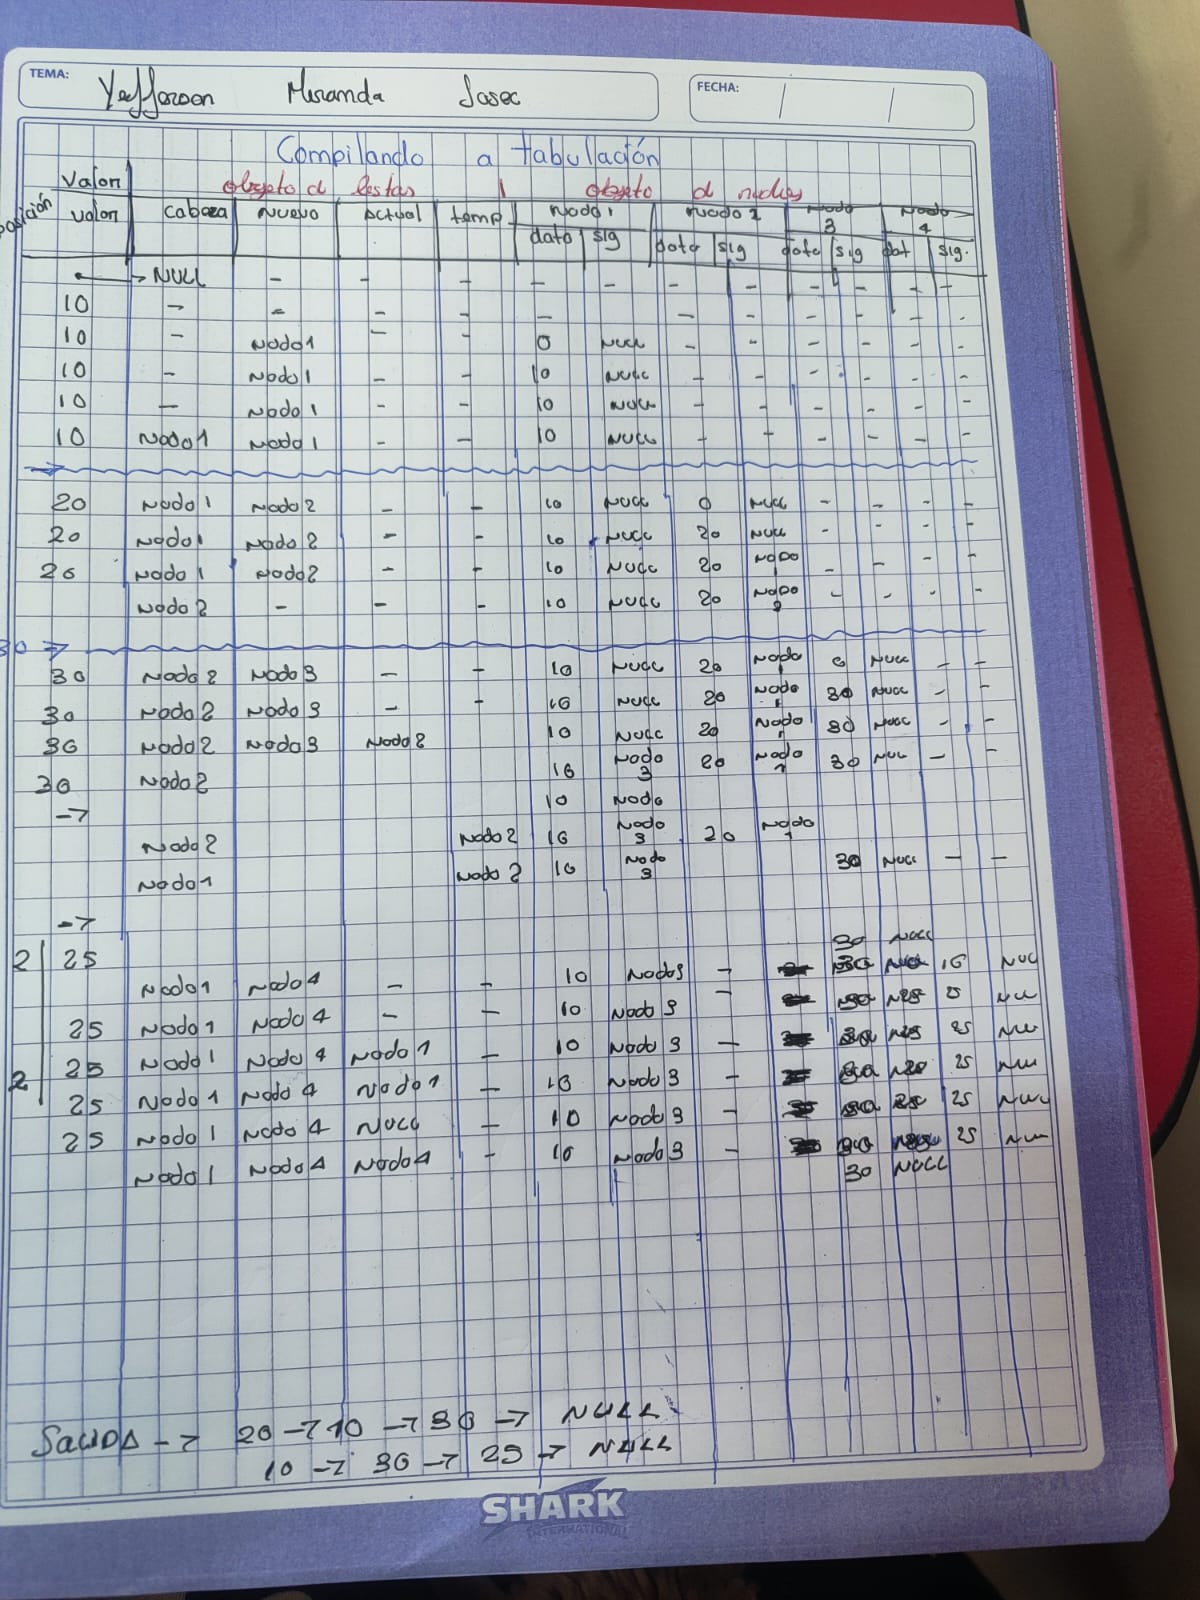 TEMA: Yefferson Miranda Josec FECHA: / /
Compilando a tabulación
Valor objeto d listas | objeto d nodos
posición valor cabeza nuevo actual temp nodo1 nodo2 nodo 3 nodo 4
dato sig dato sig dato sig dat sig.
NULL - - - - - - - - - - -
10 - - - - - - - - - - -
10 - nodo1 - - 0 NULL - - - - - -
10 - nodo1 - - 10 NULL - - - - - -
10 - nodo1 - - 10 NULL - - - - - -
10 nodo1 nodo1 - - 10 NULL - - - - - -
→
20 nodo1 nodo2 - - 10 NULL 0 NULL - - - -
20 nodo1 nodo2 - - 10 NULL 20 NULL - - - -
20 nodo1 nodo2 - - 10 NULL 20 nodo 1 - - - -
nodo2 - - - 10 NULL 20 nodo - - - -
30 →
30 nodo2 nodo3 - - 10 NULL 20 nodo 0 NULL - -
30 nodo2 nodo3 - - 10 NULL 20 nodo 30 NULL - -
30 nodo2 nodo3 nodo2 10 NULL 20 nodo 30 NULL - -
30 nodo2 10 nodo 3 20 nodo 1 30 NUL - -
→ 10 nodo
nodo2 nodo2 10 nodo 3 20 nodo 1
nodo1 nodo2 10 nodo 3 30 NULL - -
→
30 NULL
2 25 nodo1 nodo4 - - 10 nodo3 - 10 NUL
25 nodo1 nodo4 - - 10 nodo3 - 25 NUL
25 nodo1 nodo4 nodo1 - 10 nodo3 - 25 NUL
2 25 nodo1 nodo4 nodo1 - 10 nodo3 - 25 NUL
25 nodo1 nodo4 NULL - 10 nodo3 - 25 NULL
nodo1 nodo4 nodo4 - 10 nodo3 - 25 NUL
30 NULL
SALIDA → 20 → 10 → 30 → NULL
10 → 30 → 25 → NULL
SHARK
INTERNATIONAL